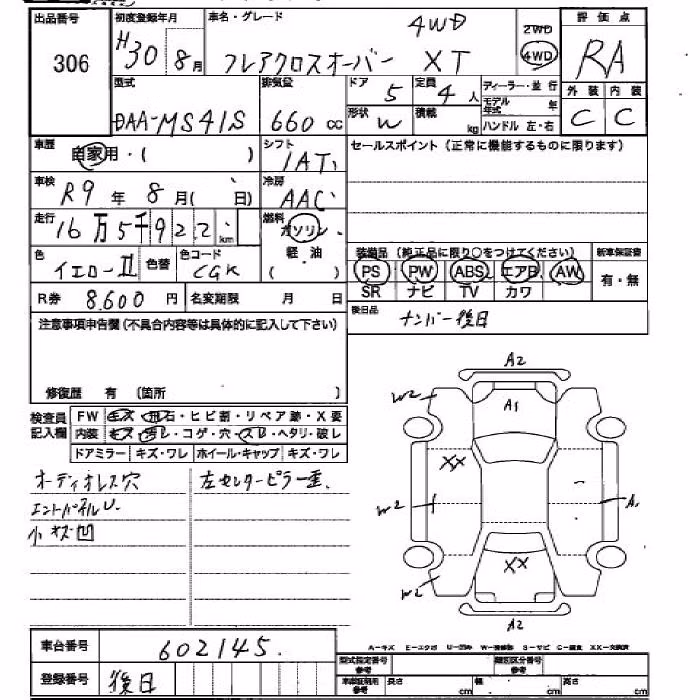 出品番号 306
初度登録年月 H30 8月
車名・グレード 4WD
フレアクロスオーバー XT
2WD
4WD
評価点 RA
外装 内装
C C
型式 DAA-MS41S
排気量 660 cc
ドア 5
定員 4人
形状 W
積載 kg
ディーラー・並行
モデル年式 年
ハンドル 左・右
車歴 自家用・( )
シフト IAT
セールスポイント(正常に機能するものに限ります)
車検 R9年 8月( 日)
冷房 AAC
走行 16万5千922 km
燃料 ガソリン
軽・油
( )
色 イエローII 色替
色コード CGK
装備品(純正品に限り○をつけてください)
新車保証書
PS PW ABS エアB AW
有・無
SR ナビ TV カワ
R券 8,600 円
名変期限 月 日
後日品 ナンバー後日
注意事項申告欄(不具合内容等は具体的に記入して下さい)
修復歴 有 〔箇所 〕
検査員記入欄
FW キズ・飛石・ヒビ割・リペア跡・X要
内装 キズ・汚レ・コゲ・穴・スレ・ヘタリ・破レ
ドアミラー キズ・ワレ ホイール・キャップ キズ・ワレ
オーディオレス穴
左センターピラー歪
小キズ凹
A2
W2
A1
XX
W2
A1
XX
W2
A2
車台番号 602145
登録番号 後日
A-キズ E-エクボ U-凹み W-補修跡 S-サビ C-腐食 XX-交換済
型式指定番号 参考
類別区分番号 参考
車車証明用 参考
長さ cm
幅 cm
高さ cm